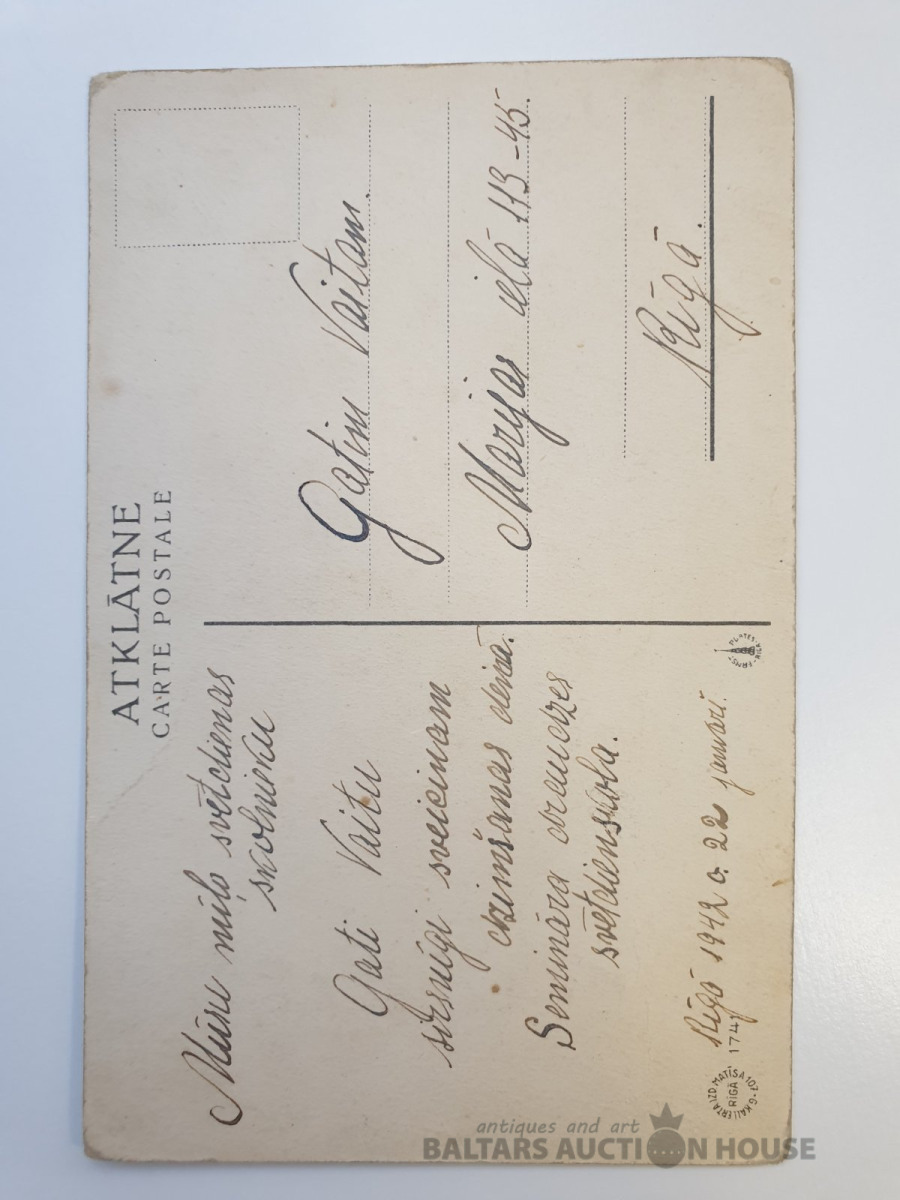 ATKLĀTNE
CARTE POSTALE
Mūsu mīļo svētdienas
skolnieku
Gati Vaitu
sirsnīgi sveicinam
dzimšanas dienā.
Semināra draudzes
svētdienskola.
Rīgā 1942 g. 22 janvārī.
174
Gatim Vaitam.
Marijas ielā 113-45.
Rīgā.
ERNST PLATES RIGA
RĪGĀ
antiques and art
BALTARS AUCTION HOUSE